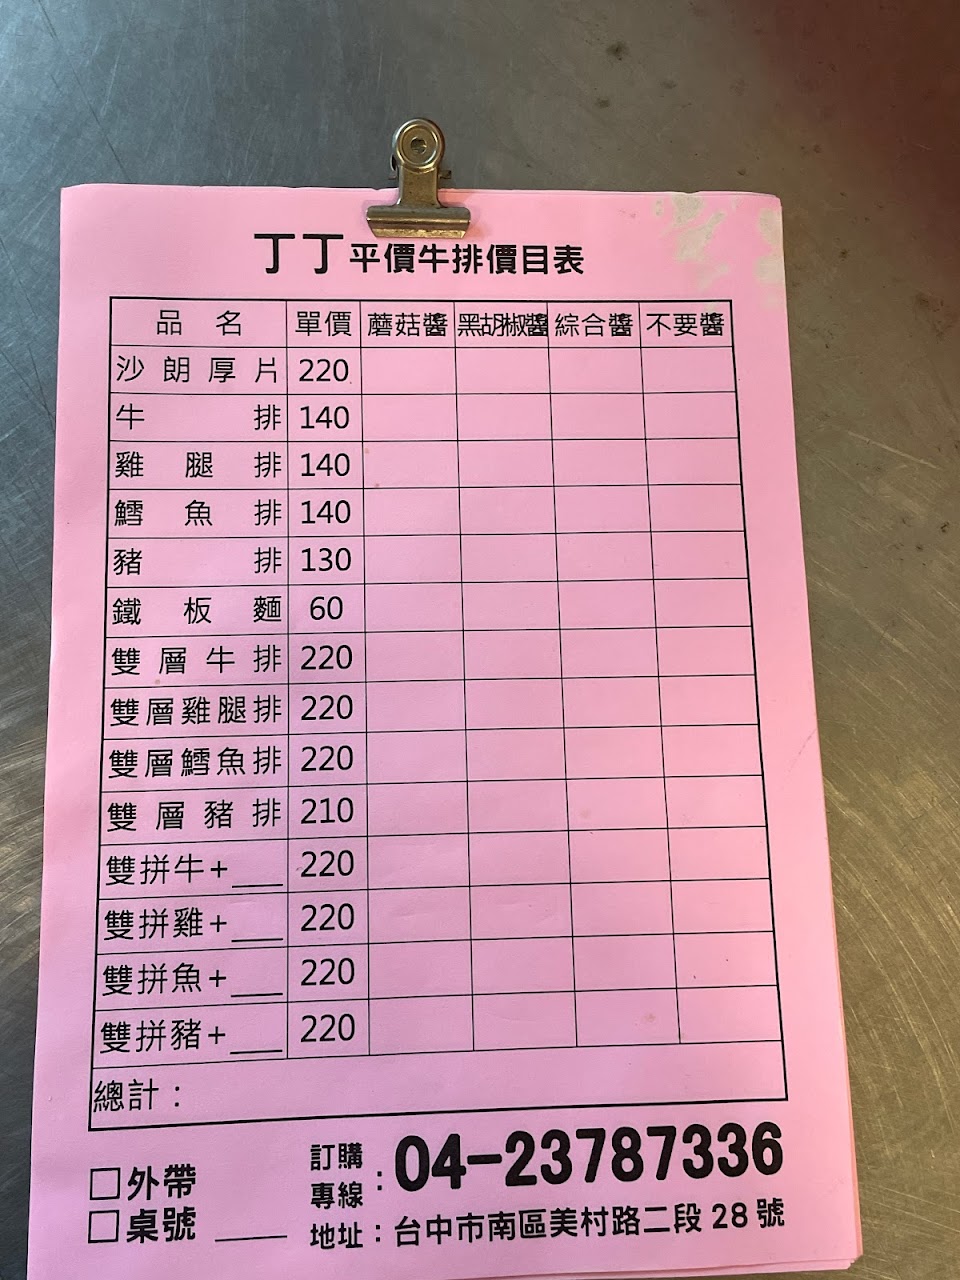 丁丁平價牛排價目表
品名 單價 蘑菇醬 黑胡椒醬 綜合醬 不要醬
沙朗厚片 220
牛排 140
雞腿排 140
鱈魚排 140
豬排 130
鐵板麵 60
雙層牛排 220
雙層雞腿排 220
雙層鱈魚排 220
雙層豬排 210
雙拼牛+___ 220
雙拼雞+___ 220
雙拼魚+___ 220
雙拼豬+___ 220
總計：
□外帶
□桌號 ____
訂購專線：04-23787336
地址：台中市南區美村路二段28號